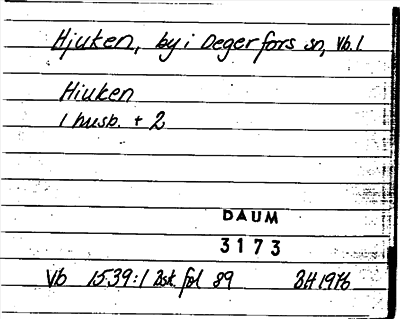 Hjuken, by i Degerfors sn, Vb. l
Hiuken
1 husb. + 2
DAUM
3173
Vb 1539:1 Dsk fol 89 BH 1976